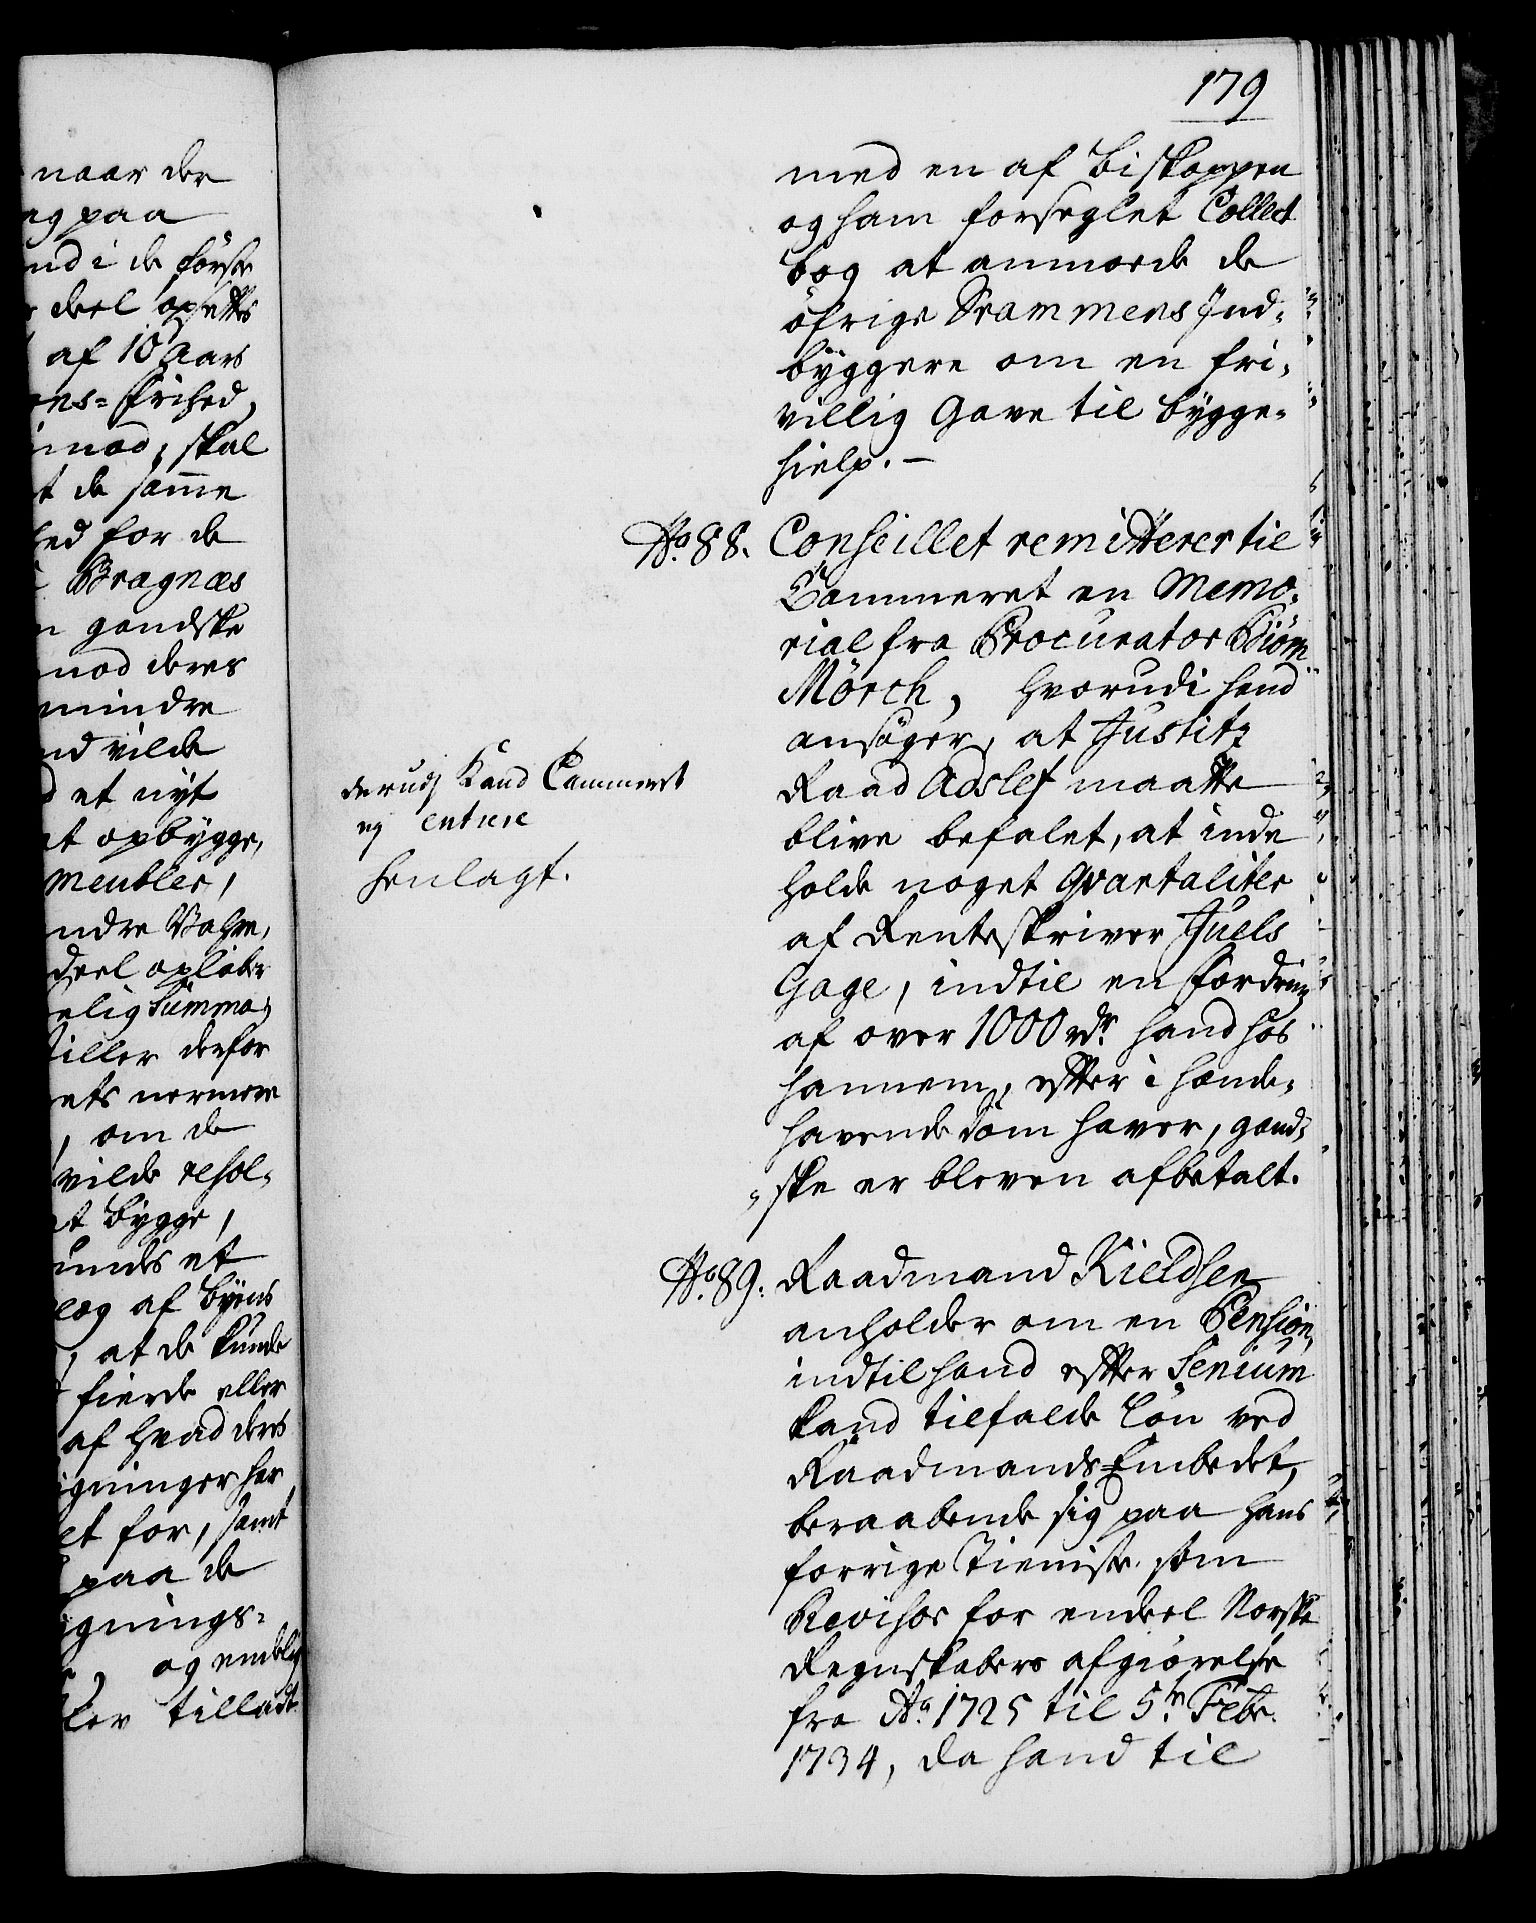 naar der
ag paa
nd i de første
deel opsettes
af 10 Aars
ons=frihed,
imod, skal
t de samme
hed for de
Bragnæs
n gandske
mod deres
mindre
nd vilde
d et nyt
t opbygge,
Meubler,
ndre Vahre,
deel opløber
elig Summa,
stiller derfor
ets nermere
, om de
vilde resol-
t bygge,
unds et
log af byens
, at de kunde
fierde eller
af hvad deres
gninger her
et for, samt
paa de
gnings=
, og endelig
ler tilladt
179
med en af Biskoppen
og ham forseglet Collect
bog at anmode de
öfrige Drammens Ind-
byggere om en fri-
villig Gave til bygge-
hielp. —
No. 88. Conseillet remitterer til
Cammeret en Memo-
rial fra Procurator Biörn
Mörch, hvorudi hand
ansöger, at Justitz
Raad Adslef maatte
blive befalet, at inde
holde noget qvartaliter
af Renteskriver Juels
Gage, indtil en fordring
af over 1000 rdr. hand hos
hannem, efter i hænde-
havende dom haver, gand-
ske er bleven afbetalt.
derudj Kand Cammeret
ej entrere
henlagt.
No. 89. Raadmand Kieldsen
anholder om en Pension,
indtil hand efter Senium
kand tilfalde Løn ved
Raadmands Embedet,
beraabende sig paa hans
forrige Tieniste som
Revisor for endeel Norske
Regnskabers afgiørelse
fra Ao. 1725 til 5te Febr.
1734, da hand til